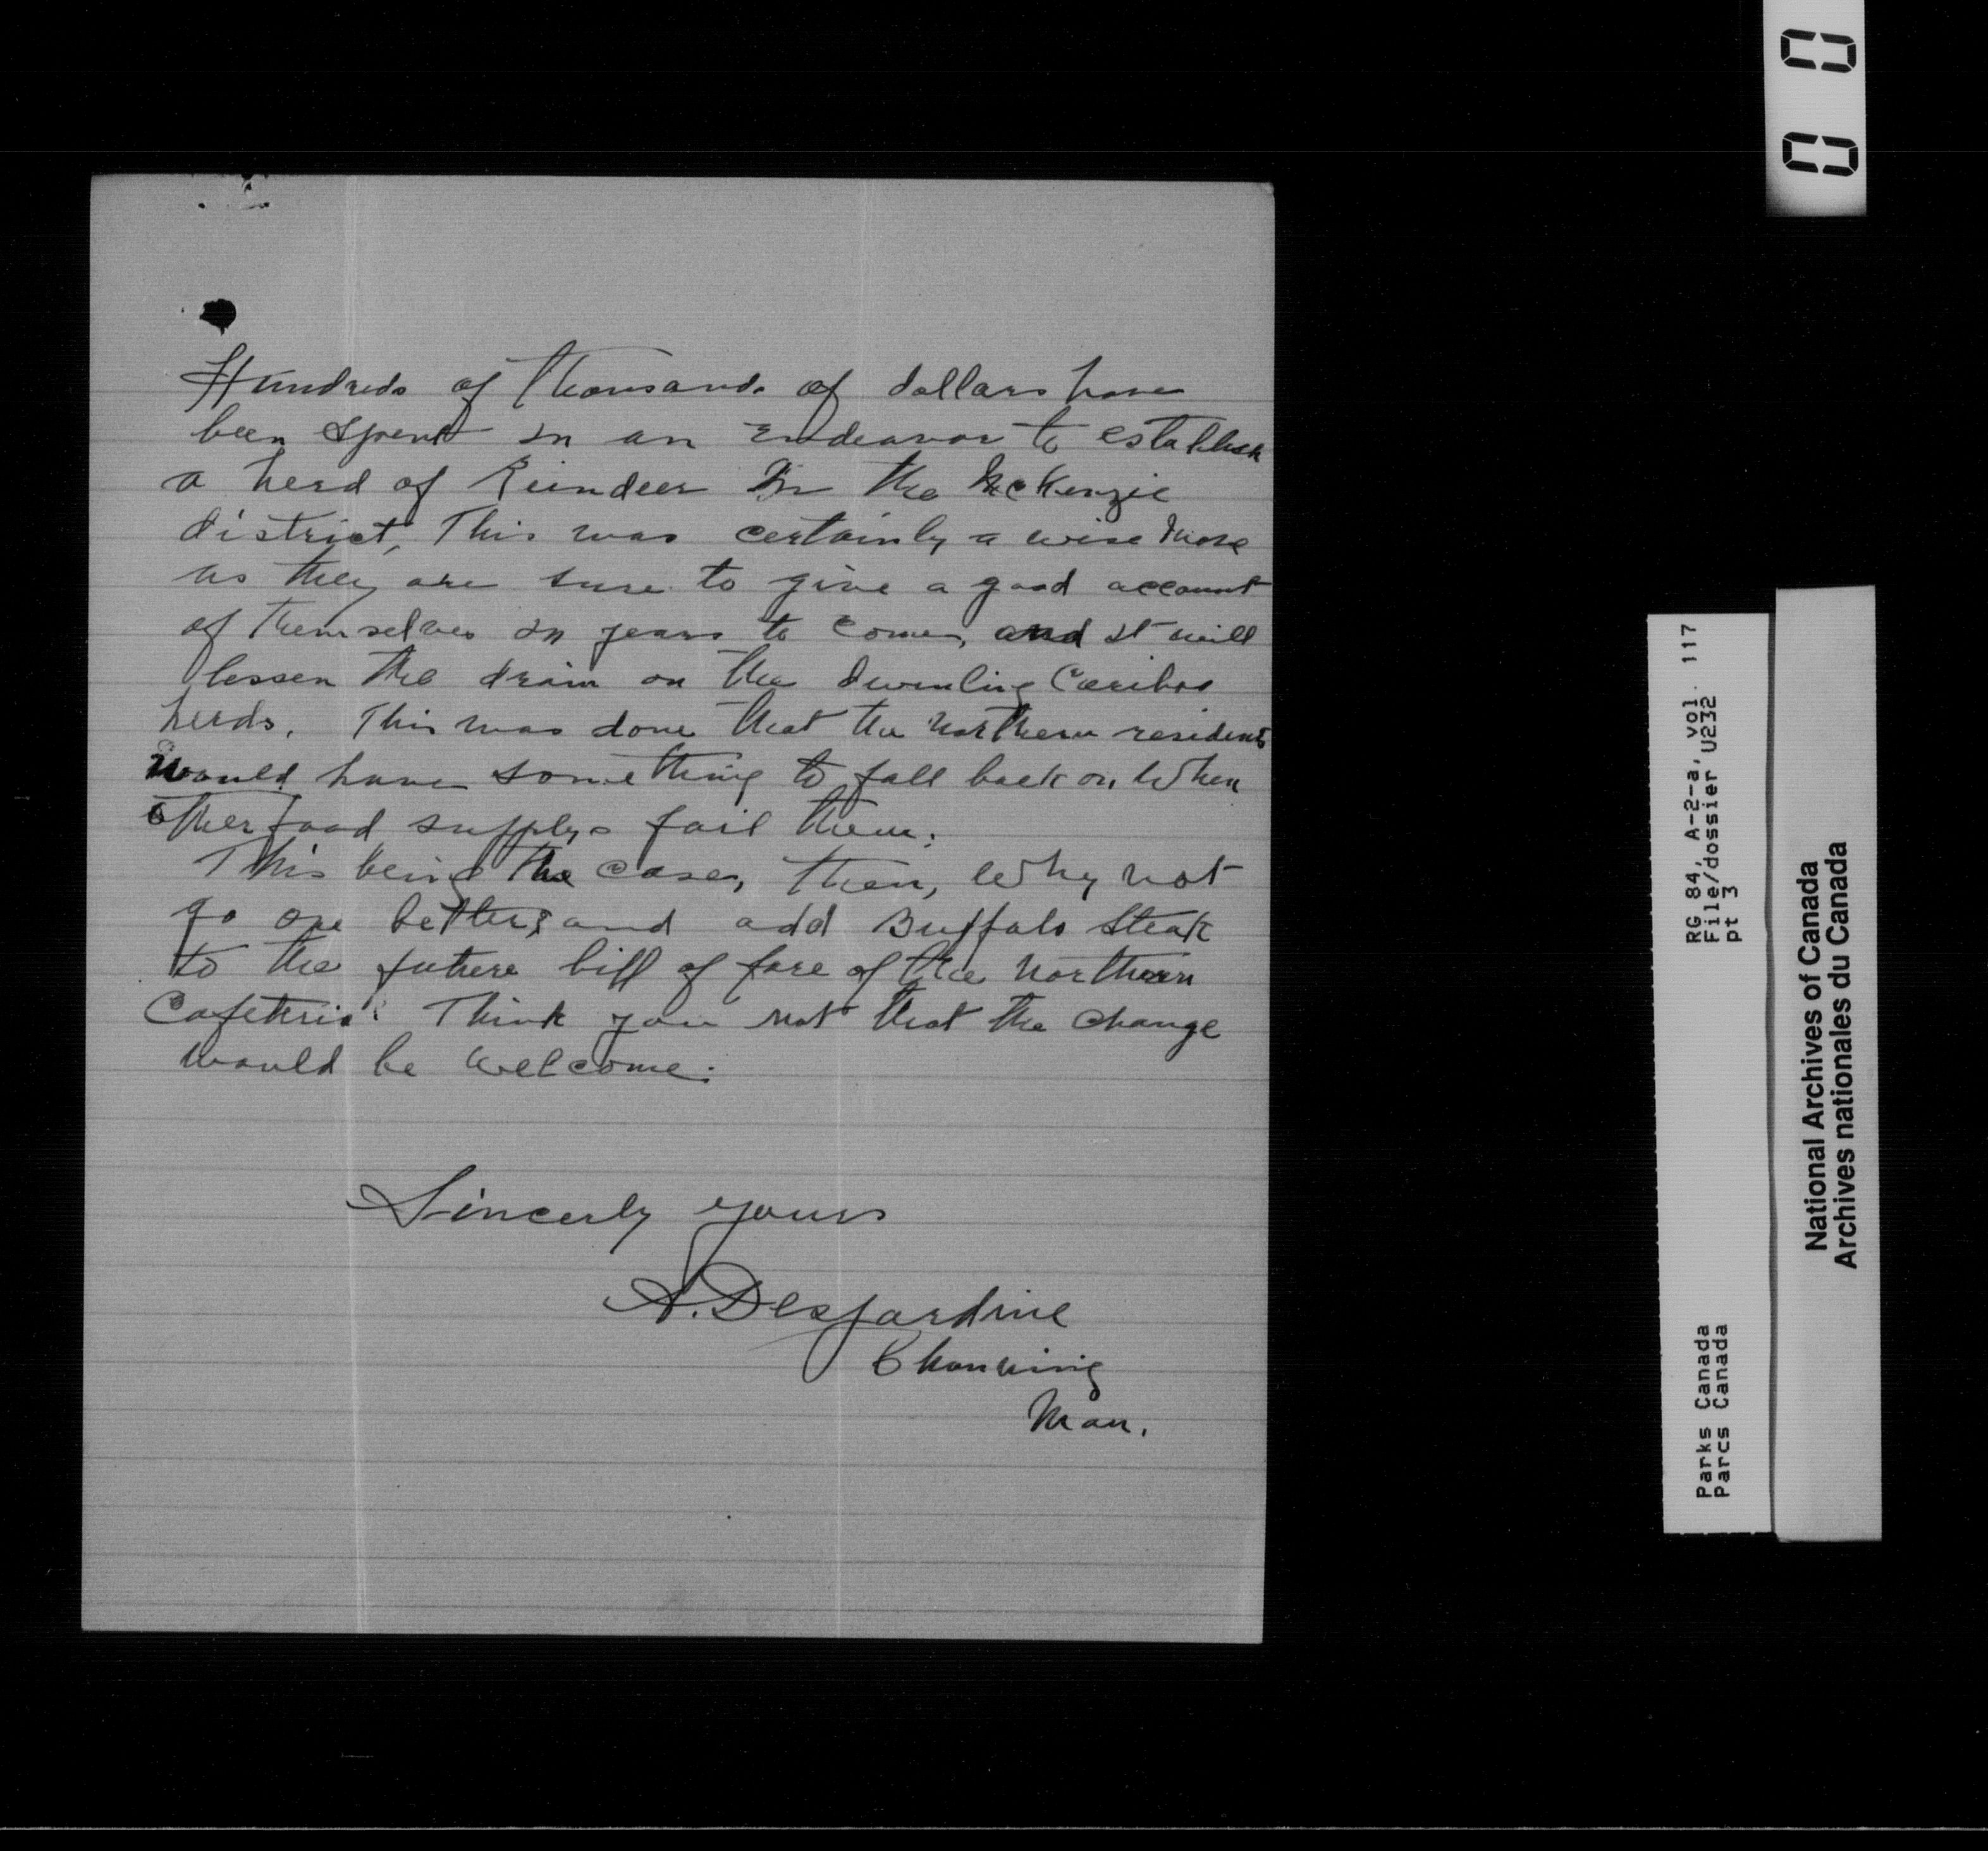 Hundreds of Thousands of dollars have
been spent in an Endeavor to establish
a herd of Reindeer In the McKenzie
district, This was certainly a wise move
as they are sure to give a good account
of themselves in years to come, and it will
lessen the drain on the dwinling Caribos
herds. This was done that the northern residents
would have something to fall back on When
other food supplys fail them.
This being the case, then, Why not
go one better, and add Buffalo Steak
to the future bill of fare of the northern
Cafeteria. Think you not that the change
would be welcome.
Sincerly yours
A. Desjardine
Channing
Man.
0 0
RG 84, A-2-a, vol. 117
File/dossier U232
pt 3
Parks Canada
Parcs Canada
National Archives of Canada
Archives nationales du Canada